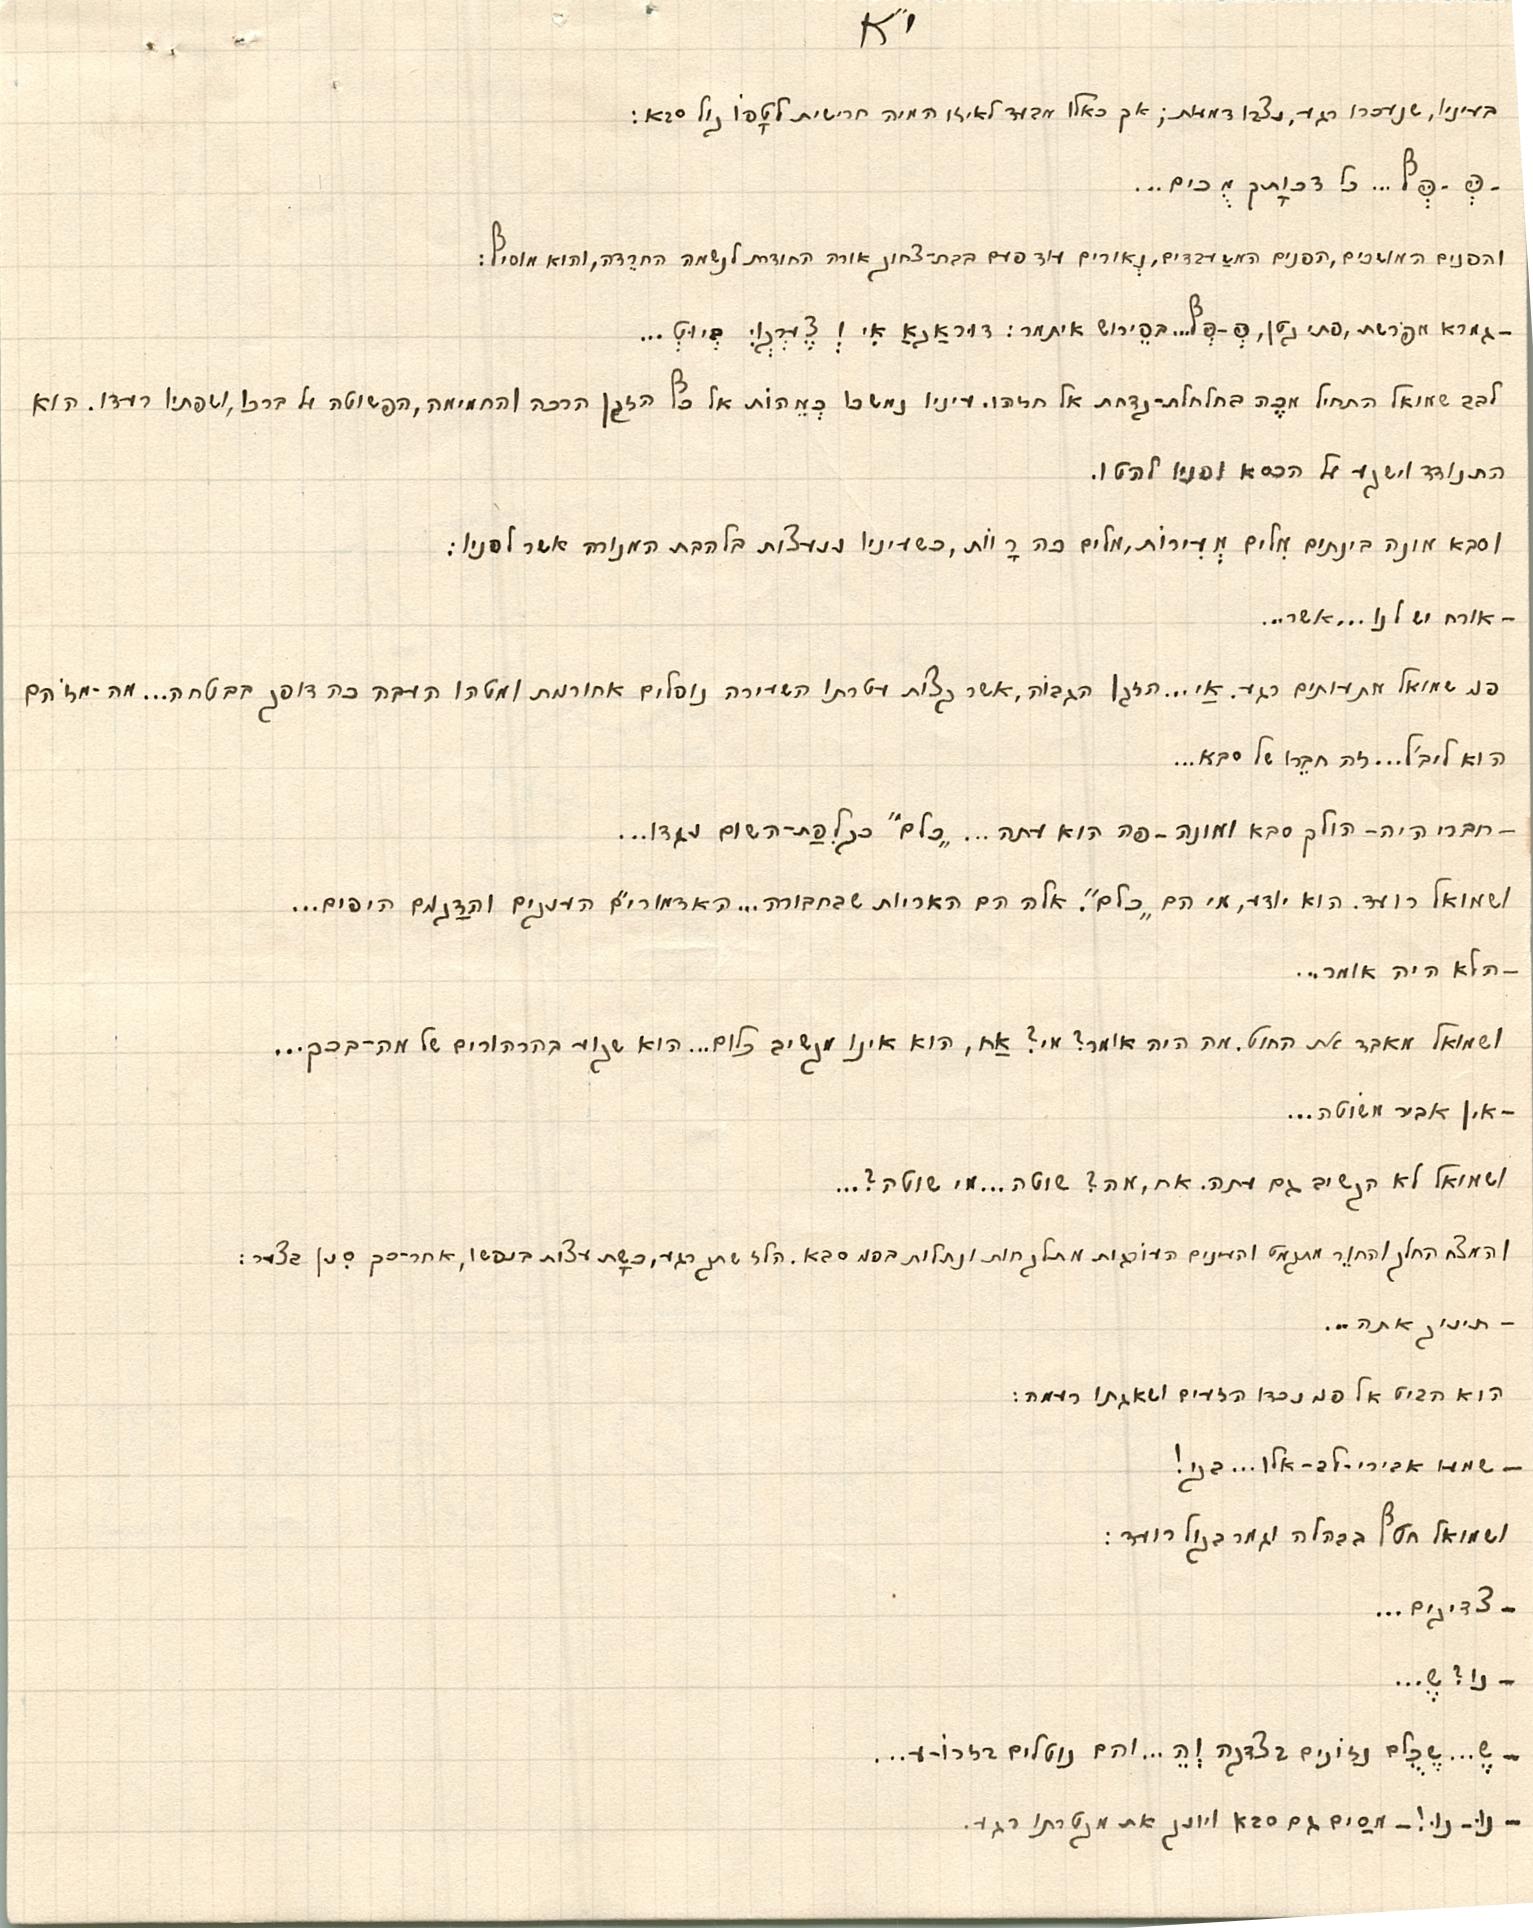 י"א
בעיניו, שנעכרו רגע, נצבו דמעות; אך כאלו מבעד לאיזו המיה חרישית לטפו קול סבא:
- פְּ - פְּף... כל דכוָתך מֻכים...
והפנים המושכים, הפנים המשעבדים, נאורים עוד פעם בבת-צחוק אורה החודרת לנשמה החרדה, והוא מוסיף:
- גמרא מפרשת, פתי קטן, פְּ-פְּף... בפירוש איתמר:
לבב שמואל התחיל מכה בחלחלת-קדחת אל חזהו. עיניו נמשכו כמהות אל כף הזקן הרכה והחמימה, הפשוטה על ברכו, ושפתיו רעדו. הוא
התנודד וישקע על הכסא ופניו להטו.
וסבא מונה בינתים מלים מעירות, מלים כה רָווֹת, כשעיניו ננעצות בלהבת המנורה אשר לפניו:
- אורח יש לנו... אשר...
פני שמואל מתעותים רגע. אַי... הזקן הגבוה, אשר קצות עטרתו השעירה נופלים אחורנית ומטהו העבה כה דופק בבטחה... מה-מזֹהם
הוא ליב'ל... זה חברו של סבא...
- חברי היה - הולך סבא ומונה - פה הוא עתה... "כלם" כקלִפַּת-השום נגדו...
ושמואל רועד. הוא יודע, מי הם "כלם". אלה הם האריות שבחבורה... האדמורי"ם הענקים והדַּקנים היפים...
- הלא היה אומר...
ושמואל מאבד את החוט. מה היה אומר? מי? אַח, הוא אינו מקשיב כלום... הוא שקוע בהרהורים של מה-בכך...
- אין אביר משוטה...
ושמואל לא הקשיב גם עתה. אח, מה? שוטה... מי שוטה?...
והמצח החלק והחור מתקמט והעינים העורגות מתלקחות ונתלות בפני סבא. הלז שתק רגע, כשָׁת עצות בנפשו, אחר-כך סִנן בצער:
- תינוק אתה...
הוא הביט אל פני נכדו הזעים ושאגתו רעמה:
- שמעו אבירי-לב - אלו... בני!
ושמואל חטף בבהלה וגמר בקול רועד:
- צדיקים...
- נו? שֶׁ...
- שֶׁ... שֶׁכֻּלם נזונים בצדקה וְהֵ... והם נוטלים בזרוֹ-ע...
- נוּ - נוּ! - מסַים גם סבא ויונק את מקטרתו רגע.